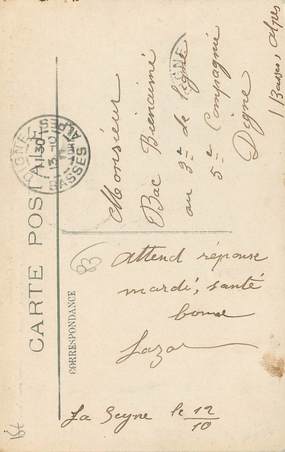 CARTE POSTALE
CORRESPONDANCE
Monsieur
Bac Bienaimé
au 3e de ligne
5e Compagnie
Digne
Basses, Alpes
DIGNE
BASSES ALPES
83
attend réponse
mardi, santé
bonne
Lazar
La Seyne le 12/10